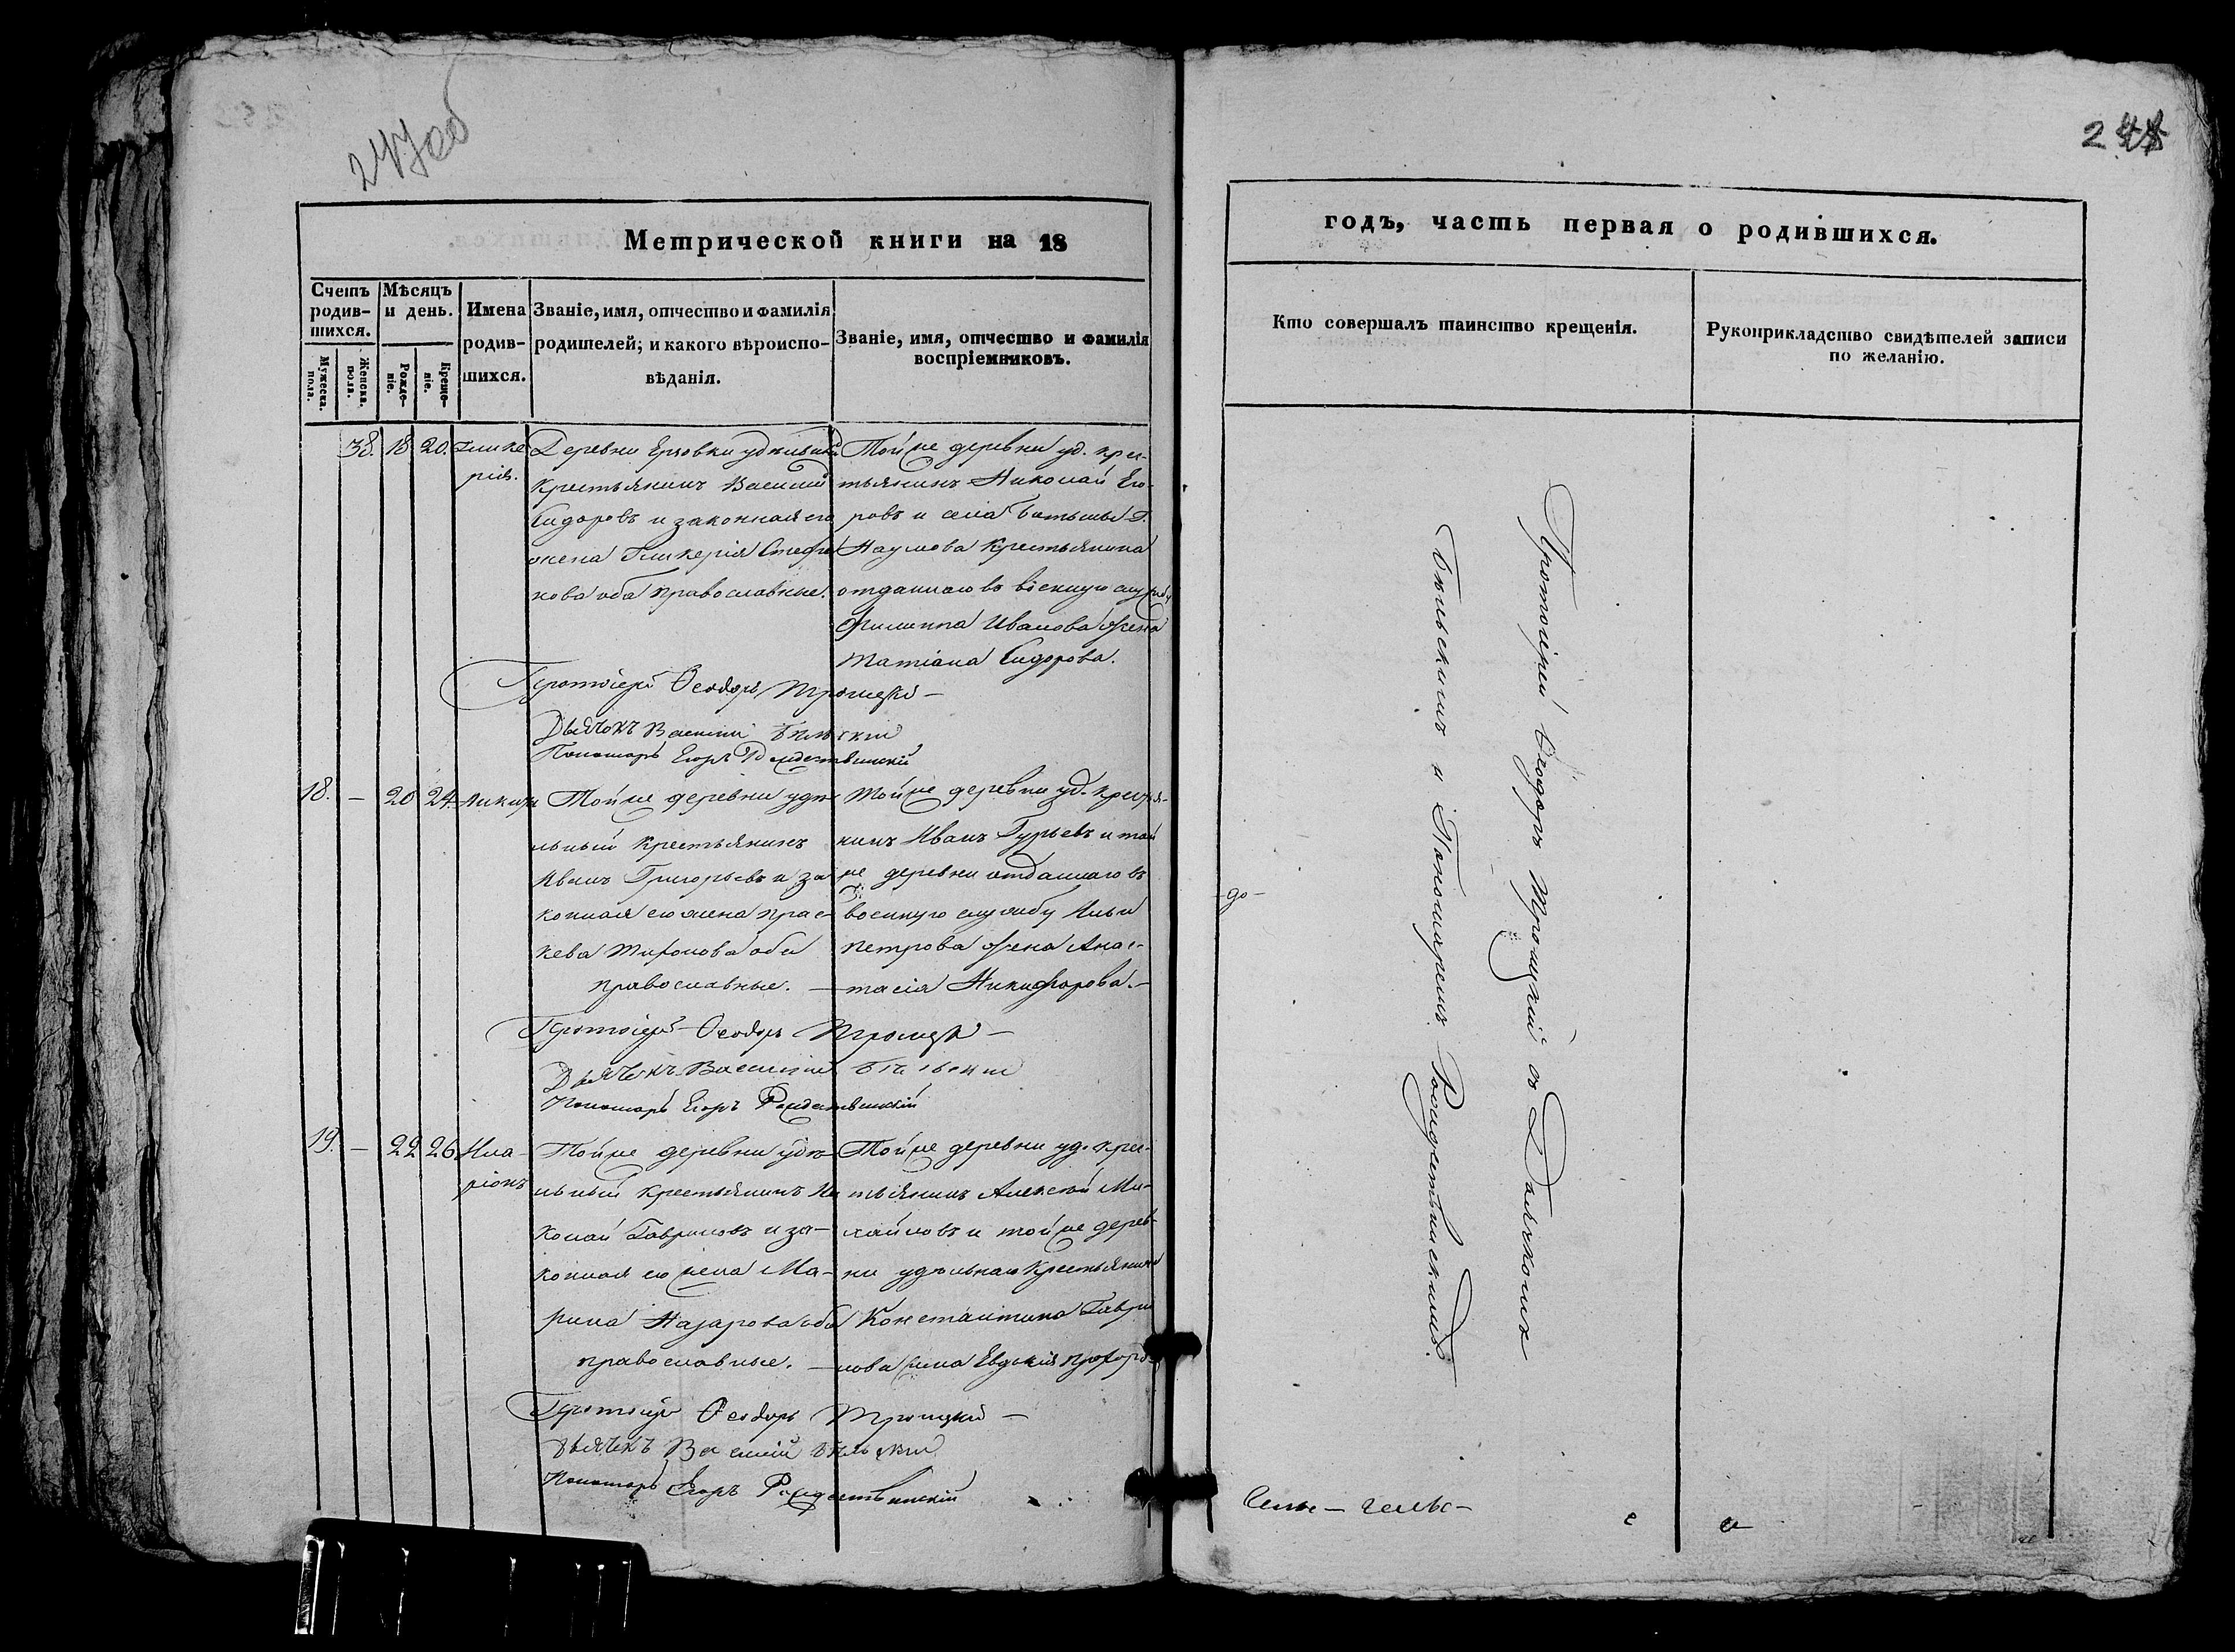 247об
Метрической книги на 18
Счетъ родив-шихся.
Мѣсяцъ и день.
Мужеска. пола.
Женска. пола.
Рожде-ніе.
Креще-ніе.
Имена родив-шихся.
Званіе, имя, отчество и фамилія
родителей; и какого вѣроиспо-
вѣданія.
Званіе, имя, отчество и фамилія
воспріемниковъ.
38. 18 20. Глике
рія.
Деревни Ерзовки удѣльный
крестьянинъ Василій
Сидоровъ и законная его
жена Гликерія Стефа
нова оба православные.
Той же деревни уд. крес-
тьянинъ Николай Его-
ровъ и села
Наумова крестьянина
отданнаго въ военную службу
Филиппа Иванова жена
Татіана Сидорова.
Протоіерей Ѳеодоръ Троицкій
Дьячокъ Василій Бѣльскій
Пономарь Егоръ Рождественскій
18. — 20 24.
Той же деревни удѣ
льный крестьянинъ
Иванъ Григорьевъ и за
конная его жена Прас-
кева Тифонова оба
православные. —
Той же деревни уд. крестья-
нинъ Иванъ Гурьевъ и той
же деревни отданнаго въ
военную службу Ильи
Петрова жена Анас-
тасія Никифорова. —
Протоіерей Ѳеодоръ Троицкій
Дьячекъ Василій Бѣльскій
Пономарь Егоръ Рождественскій
19. — 22 26 Ила-
ріонъ
Той же деревни удѣ
льный крестьянинъ Ни
колай Гавриловъ и за-
конная его жена Ма-
рина Назарова оба
православные. —
Той же деревни уд. крес-
тьянинъ Алексѣй Ми-
хайловъ и той же дерев-
ни удѣльнаго крестьянина
Константина Гаври
лова жена Евдокія Прохоро
Протоіерей Ѳеодоръ Троицкій
Дьячекъ Василій Бѣльскій
Пономарь Егоръ Рождественскій
годъ, часть первая о родившихся.
Кто совершалъ таинство крещенія.
Рукоприкладство свидѣтелей записи
по желанію.
Протоіерей Ѳеодоръ Троицкій съ Дьячкомъ
Бѣльскимъ и Пономаремъ Рождественскимъ.
-до-